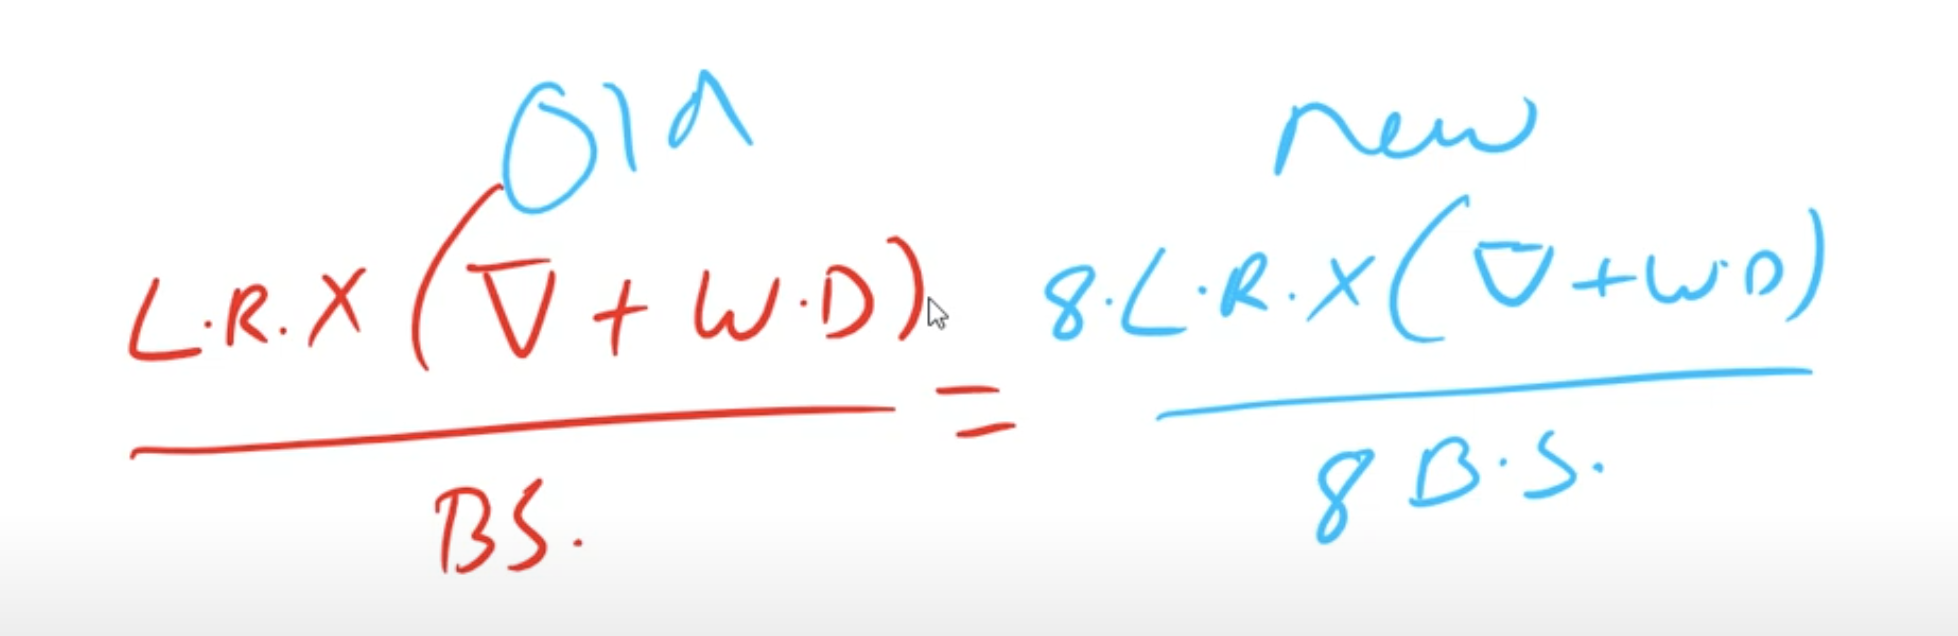 Old new
L.R. X (∇ + W.D) = 8.L.R. X (∇ + W.D)
BS. 8 B.S.